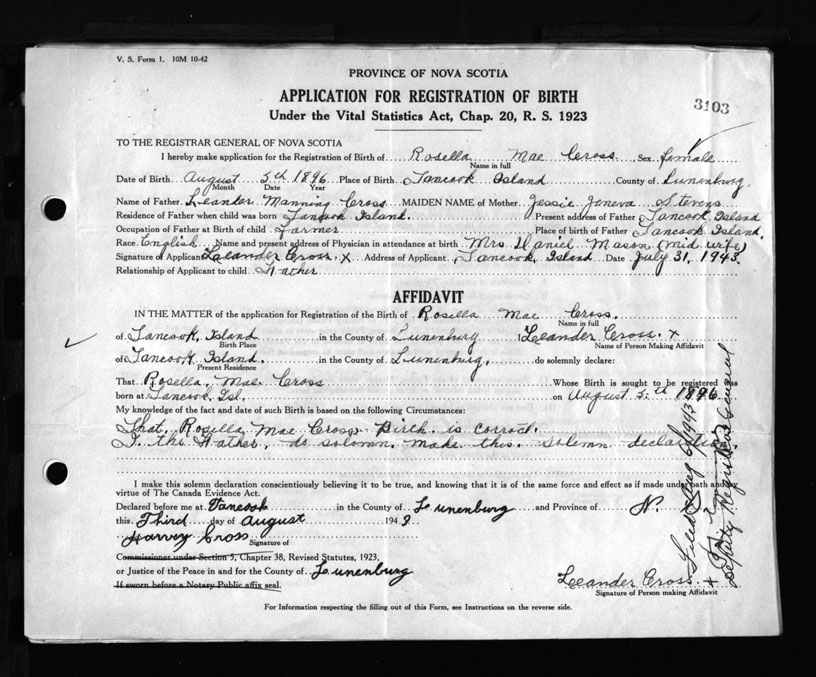 V. S. Form 1. 10M 10-42
PROVINCE OF NOVA SCOTIA
APPLICATION FOR REGISTRATION OF BIRTH
3103
Under the Vital Statistics Act, Chap. 20, R. S. 1923
TO THE REGISTRAR GENERAL OF NOVA SCOTIA
I hereby make application for the Registration of Birth of Rosella Mae Cross, Sex female
Name in full
Date of Birth August 5th 1896 Place of Birth Tancook Island County of Lunenburg
Month Date Year
Name of Father Leander Manning Cross MAIDEN NAME of Mother Jessie Jeneva Stevens
Residence of Father when child was born Tancook Island. Present address of Father Tancook Island
Occupation of Father at Birth of child Farmer Place of birth of Father Tancook Island.
Race English Name and present address of Physician in attendance at birth Mrs. Daniel Mason (mid wife)
Signature of Applicant Leander Cross. X Address of Applicant Tancook, Island Date July 31, 1943.
Relationship of Applicant to child Father
AFFIDAVIT
IN THE MATTER of the application for Registration of the Birth of Rosella Mae Cross.
Name in full
of Tancook, Island in the County of Lunenburg I Leander Cross. x
Birth Place Name of Person Making Affidavit
of Tancook Island. in the County of Lunenburg. do solemnly declare:
Present Residence
That Rosella, Mae Cross Whose Birth is sought to be registered was
born at Tancook Isl. on August 5th 1896
My knowledge of the fact and date of such Birth is based on the following Circumstances:
That Rosella Mae Cross Birth is correct.
I, the Father, do solomn, make this solemn declaration.
I make this solemn declaration conscientiously believing it to be true, and knowing that it is of the same force and effect as if made under oath and
virtue of The Canada Evidence Act.
Declared before me at Tancook in the County of Lunenburg and Province of N.
this Third day of August 1943
Harvey Cross
Signature of
Commissioner under Section 5, Chapter 38, Revised Statutes, 1923,
or Justice of the Peace in and for the County of Lunenburg
If sworn before a Notary Public affix seal.
Leander Cross. x
Signature of Person making Affidavit
For Information respecting the filling out of this Form, see Instructions on the reverse side.
Filed Aug 6/1943
Deputy Registrar General